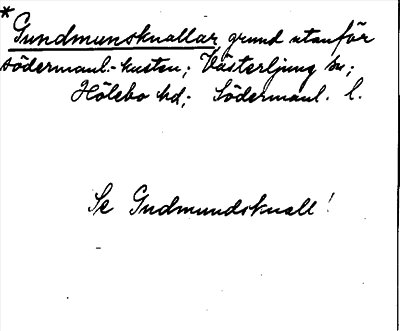 *
Gundmunsknallar, grund utanför
södermanl.-kusten; Västerljung sn;
Hölebo hd; Södermanl. l.
Se Gudmundsknall!